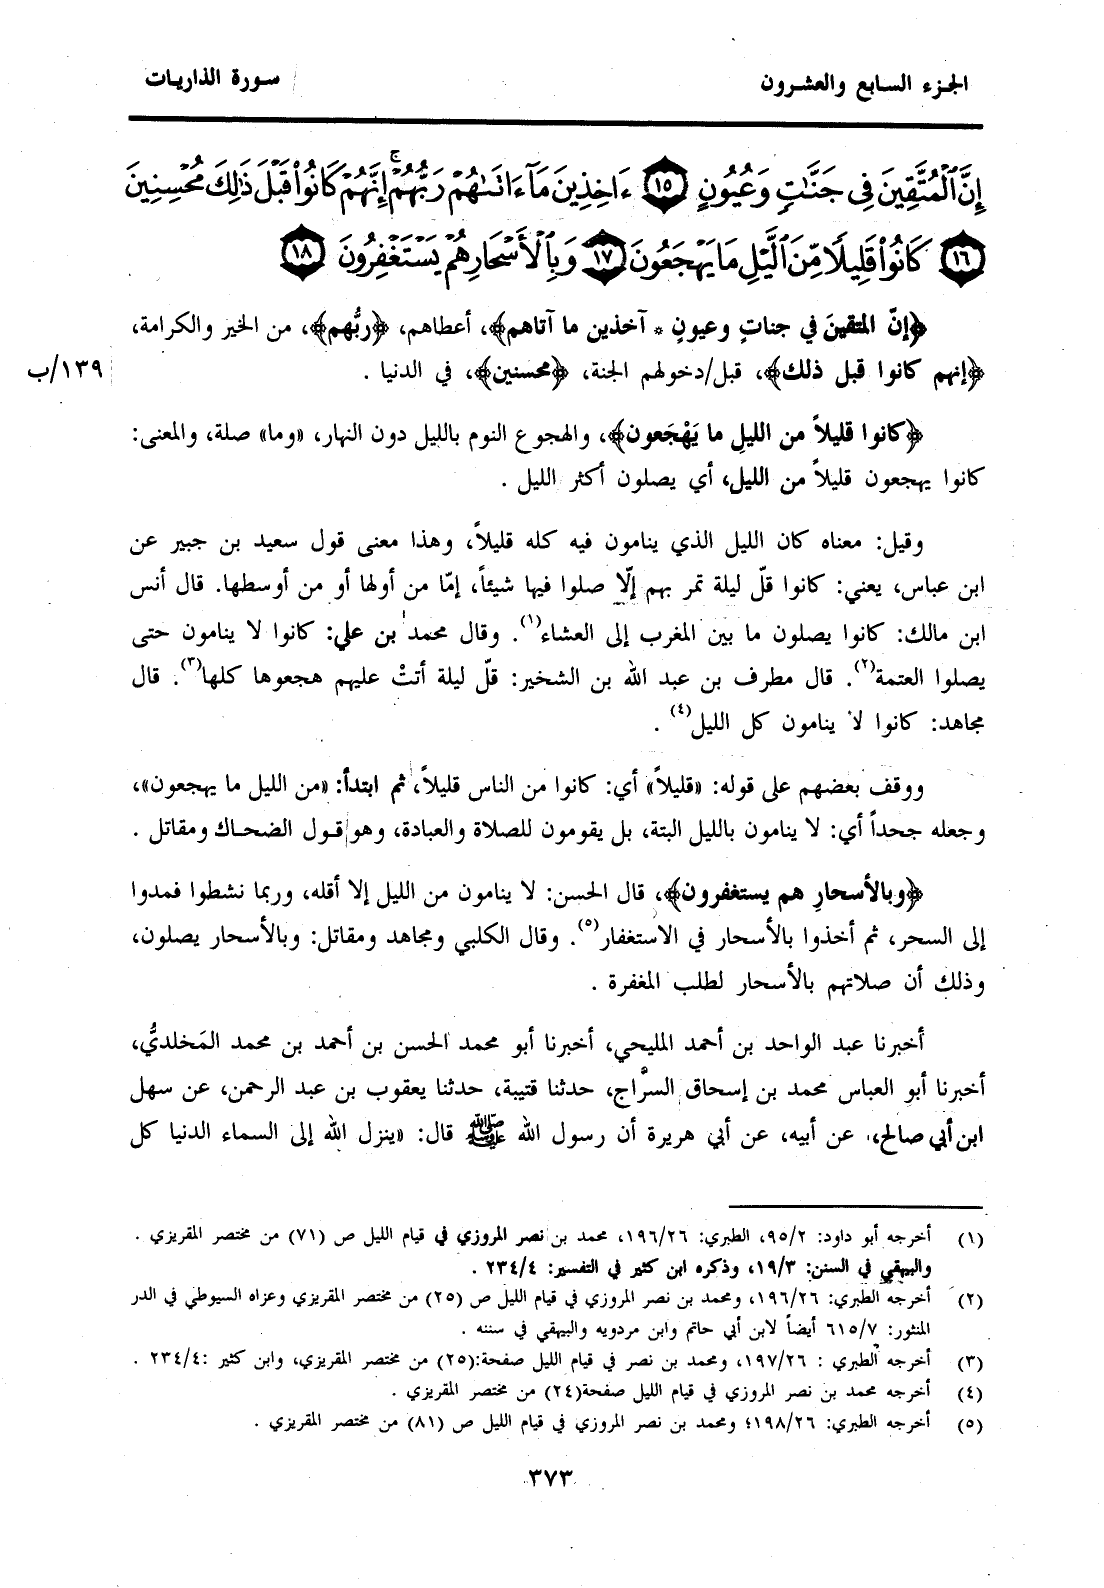 الجزء السابع والعشرون
سورة الذاريات
إِنَّ ٱلْمُتَّقِينَ فِى جَنَّٰتٍ وَعُيُونٍ ١٥ ءَاخِذِينَ مَآ ءَاتَىٰهُمْ رَبُّهُمْ ۚ إِنَّهُمْ كَانُوا۟ قَبْلَ ذَٰلِكَ مُحْسِنِينَ
١٦ كَانُوا۟ قَلِيلًا مِّنَ ٱلَّيْلِ مَا يَهْجَعُونَ ١٧ وَبِٱلْأَسْحَارِ هُمْ يَسْتَغْفِرُونَ ١٨
﴿إنّ المتقينَ في جناتٍ وعيونٍ * آخذين ما آتاهم﴾، أعطاهم، ﴿ربُّهم﴾، من الخير والكرامة،
﴿إنهم كانوا قبل ذلك﴾، قبل/دخولهم الجنة، ﴿محسنين﴾، في الدنيا .
١٣٩/ب
﴿كانوا قليلاً من الليلِ ما يَهْجَعون﴾، والهجوع النوم بالليل دون النهار، «وما» صلة، والمعنى:
كانوا يهجعون قليلاً من الليل، أي يصلون أكثر الليل .
وقيل: معناه كان الليل الذي ينامون فيه كله قليلاً، وهذا معنى قول سعيد بن جبير عن
ابن عباس، يعني: كانوا قلّ ليلة تمر بهم إلّا صلوا فيها شيئاً، إمّا من أولها أو من أوسطها. قال أنس
ابن مالك: كانوا يصلون ما بين المغرب إلى العشاء(١). وقال محمد بن علي: كانوا لا ينامون حتى
يصلوا العتمة(٢). قال مطرف بن عبد الله بن الشخير: قلّ ليلة أتتْ عليهم هجعوها كلها(٣). قال
مجاهد: كانوا لا ينامون كل الليل(٤) .
ووقف بعضهم على قوله: «قليلاً» أي: كانوا من الناس قليلاً، ثم ابتدأ: «من الليل ما يهجعون»،
وجعله جحداً أي: لا ينامون بالليل البتة، بل يقومون للصلاة والعبادة، وهو قول الضحاك ومقاتل .
﴿وبالأسحارِ هم يستغفرون﴾، قال الحسن: لا ينامون من الليل إلا أقله، وربما نشطوا فمدوا
إلى السحر، ثم أخذوا بالأسحار في الاستغفار(٥). وقال الكلبي ومجاهد ومقاتل: وبالأسحار يصلون،
وذلك أن صلاتهم بالأسحار لطلب المغفرة .
أخبرنا عبد الواحد بن أحمد المليحي، أخبرنا أبو محمد الحسن بن أحمد بن محمد المَخلديُّ،
أخبرنا أبو العباس محمد بن إسحاق السرَّاج، حدثنا قتيبة، حدثنا يعقوب بن عبد الرحمن، عن سهل
ابن أبي صالح، عن أبيه، عن أبي هريرة أن رسول الله ﷺ قال: «ينزل الله إلى السماء الدنيا كل
(١) أخرجه أبو داود: ٩٥/٢، الطبري: ١٩٦/٢٦، محمد بن نصر المروزي في قيام الليل ص (٧١) من مختصر المقريزي .
والبيهقي في السنن: ١٩/٣، وذكره ابن كثير في التفسير: ٢٣٤/٤ .
(٢) أخرجه الطبري: ١٩٦/٢٦، ومحمد بن نصر المروزي في قيام الليل ص (٢٥) من مختصر المقريزي وعزاه السيوطي في الدر
المنثور: ٦١٥/٧ أيضاً لابن أبي حاتم وابن مردويه والبيهقي في سننه .
(٣) أخرجه الطبري : ١٩٧/٢٦، ومحمد بن نصر في قيام الليل صفحة:(٢٥) من مختصر المقريزي، وابن كثير :٢٣٤/٤ .
(٤) أخرجه محمد بن نصر المروزي في قيام الليل صفحة(٢٤) من مختصر المقريزي .
(٥) أخرجه الطبري: ١٩٨/٢٦؛ ومحمد بن نصر المروزي في قيام الليل ص (٨١) من مختصر المقريزي .
٣٧٣